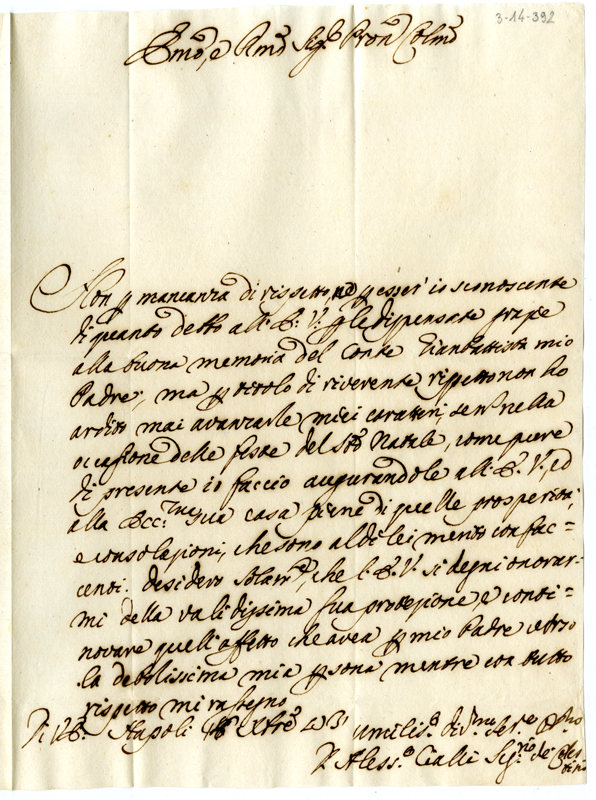 3-14-392
Emo, e Rmo Sigr Pron Colmo
Non p mancanza di rispetto, nè p esser io sconoscente
di quanto debbo all' E. V. p le dispensate grazie
alla buona memoria del Conte Gianbattista mio
Padre; ma p titolo di riverente rispetto non ho
ardito mai avanzarle miei caratteri, se nõ nella
occasione delle feste del Sto Natale, come pure
di presente io faccio augurandole all' E. V., ed
alla Ecc.ma sua casa piene di quelle prosperità,
e consolazioni, che sono al di lei merito confac=
centi. desidero solam.e, che l'E. V. si degni onorar=
mi della validissima sua protezione, e conti=
novare quell' affetto che avea p mio Padre verso
la debolissima mia psona mentre con tutto
rispetto mi rassegno
Di V.E. Napoli Xbre umilis.o div.mo ser.e
Aless.o Cialli Sig.rio de